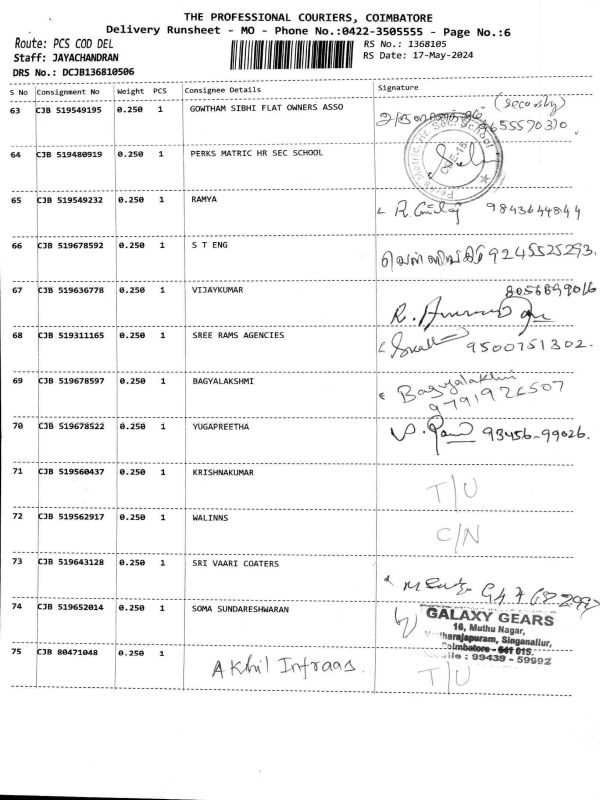 THE PROFESSIONAL COURIERS, COIMBATORE
Delivery Runsheet - MO - Phone No.:0422-3505555 - Page No.:6
Route: PCS COD DEL
RS No.: 1368105
Staff: JAYACHANDRAN
RS Date: 17-May-2024
DRS No.: DCJB136810506
S No Consignment No Weight PCS Consignee Details Signature
63 CJB 519549195 0.250 1 GOWTHAM SIBHI FLAT OWNERS ASSO (Security)
9655570310
64 CJB 519480919 0.250 1 PERKS MATRIC HR SEC SCHOOL
Perks Matric Hr. Sec. School
65 CJB 519549232 0.250 1 RAMYA 9843644844
66 CJB 519678592 0.250 1 S T ENG 9245525293.
67 CJB 519636778 0.250 1 VIJAYKUMAR 8056899016
68 CJB 519311165 0.250 1 SREE RAMS AGENCIES 9500751302.
69 CJB 519678597 0.250 1 BAGYALAKSHMI Bagyalakhmi
9791926507
70 CJB 519678522 0.250 1 YUGAPREETHA 93456-99026.
71 CJB 519560437 0.250 1 KRISHNAKUMAR T/U
72 CJB 519562917 0.250 1 WALINNS C/N
73 CJB 519643128 0.250 1 SRI VAARI COATERS
74 CJB 519652014 0.250 1 SOMA SUNDARESHWARAN GALAXY GEARS
16, Muthu Nagar,
Singanallur,
Coimbatore - 641 015.
Mobile : 99439 - 59992
75 CJB 80471048 0.250 1 Akhil Infraas. T/U